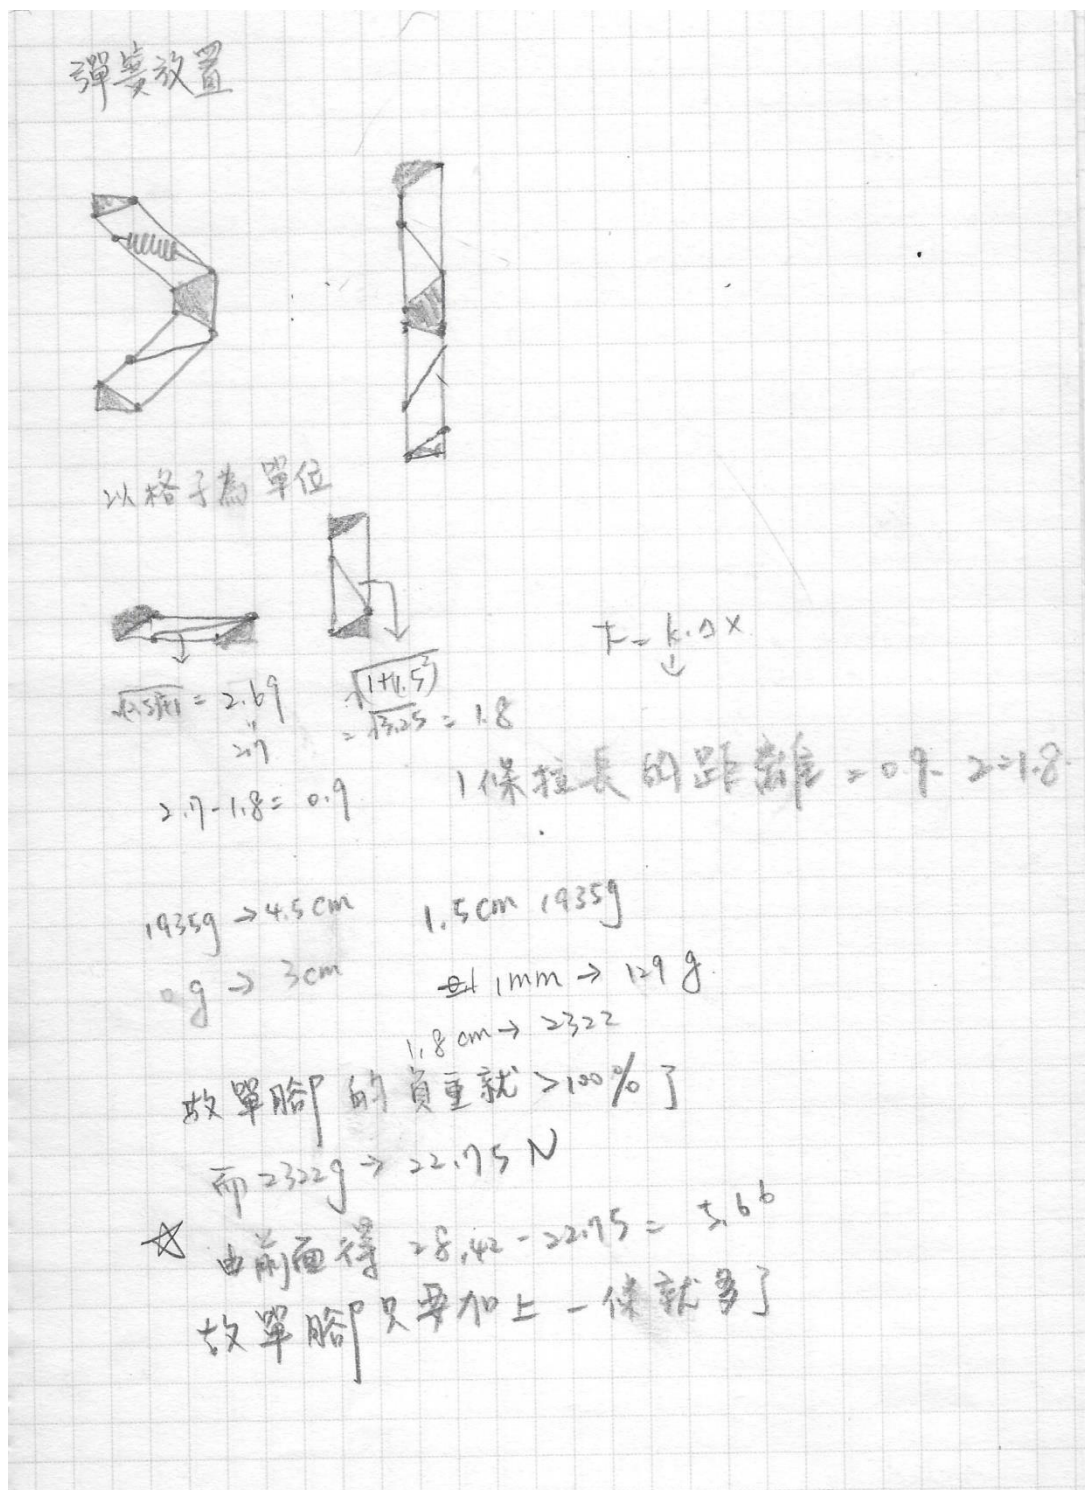 彈簧放置
以格子為單位
F = k.Δx
↓
√(2.5)²+1 = 2.69
2.7
√(1+1.5²)
= √3.25 = 1.8
2.7-1.8= 0.9
1條拉長的距離 = 0.9.2=1.8.
1935g → 4.5cm
1.5cm 1935g
0g → 3cm
1mm → 129g.
1.8cm → 2322
故單腳的負重就 >100%了
而2322g → 22.75N
☆ 由前面得 28.42-22.75= 5.66
故單腳只要加上一條就多了